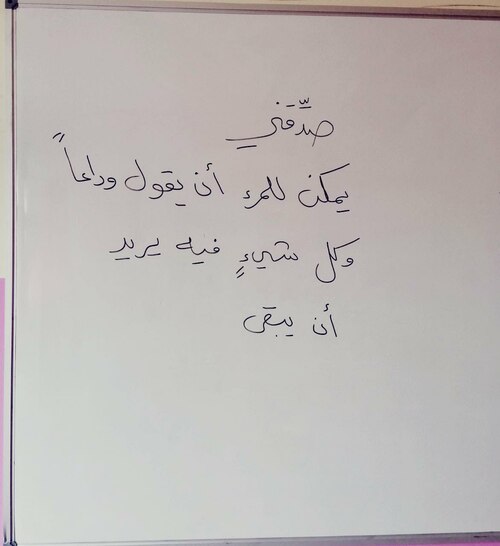 صدِّقني
يمكن للمرء أن يقول وداعاً
وكل شيءٍ فيه يريد
أن يبقى